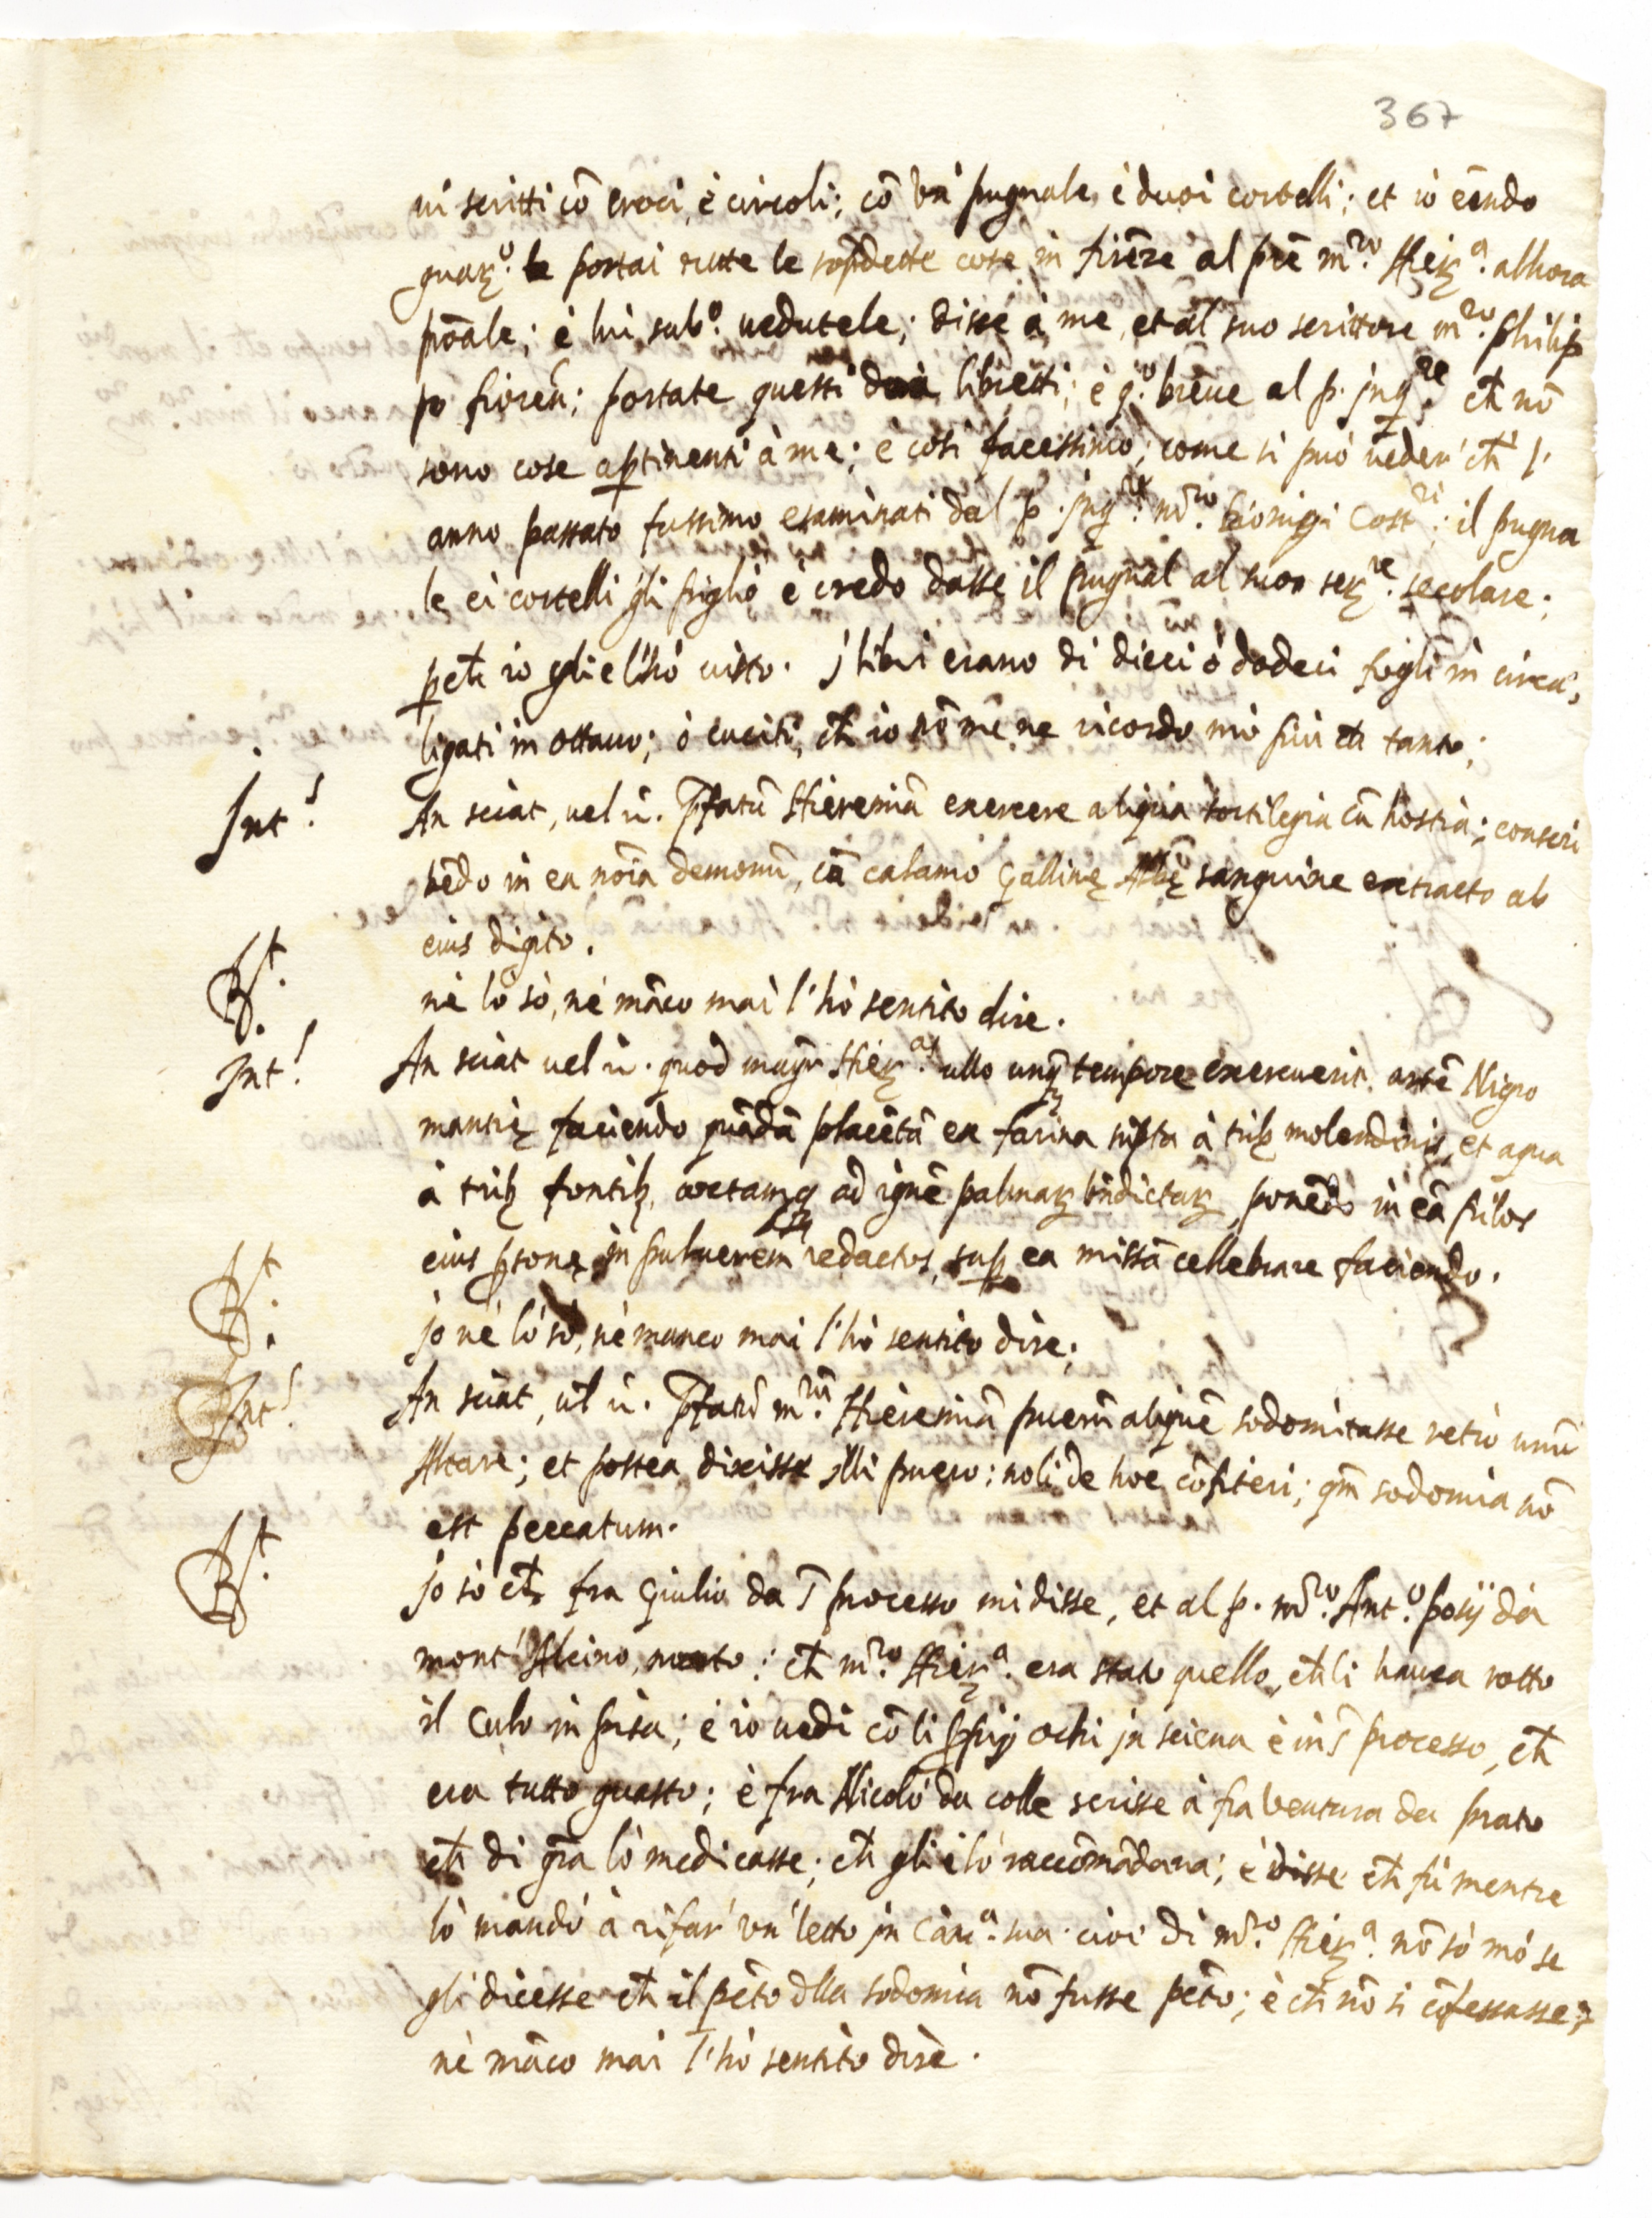 367
ui scritti cō croci, è circoli; cō un' pugnale, è duoi cortelli; et io eēndo
guarͦ. le portai tutte le sopͣdette cose in firēze al prē mͬᵒ. Hierͣ. alhora
prōale; è lui subᵒ. uedutele; disse à me, et al suo scrittore mͬᵒ. philip
po fiorēn; portate questi duoi libretti; è qᵒ. breue al p. jnqʳᵉ. ch̄ nō
sono cose aptinenti à me; è così facessimo; come si può ueder' ch̄ l'
anno passato fussimo esaminati dal p. jnqʳᵉ. mͬᵒ. Dionigi Costʳⁱ; il pugna
le è i cortelli gli pigliò è credo dasse il pugnal al suo serʳᵉ. secolare;
pch̄ io glie l'hò uisto. j libri erano di dieci ò dodeci fogli in circa,
ligati in ottauo; ò cuciti, ch̄ io nō mē ne ricordo mò piu ch̄ tanto;
Intˢ. An sciat, uel n̄. Pfatū Hieremiā exercere aliqua sortilegia cū hostia; conscri
bēdo in ea noīa demonū, cū calamo Gallinę Albę sanguine extracto ab
eius digito.
Rͭ. nè lo sò, nè māco mai l'hò sentito dire.
Intˢ. An sciat uel n̄. quod magr̄ Hierᵃˢ. ullo unq̄ tempore exercuerit artē Nigro
mantię faciendo quādā placētā ex farina supta à tribꝫ molendinis, et aqua
à tribꝫ fontibꝫ, coctamq ad ignē palmarꝫ bn̄dictarꝫ, ponēdo in eā pilos
eius psonę in puluerem redactos, sup ea missā cellebrare faciendo.
Rͭ. jo nè lo sò, nè manco mai l'hò sentito dire;
Intˢ. An sciat, ul̄ n̄. Pfatū mͬᵐ. Hieremiā puerū aliquē sodomitasse retrò unū
Altare; et postea dixisse illi puero: noli de hoc cōfiteri; qm̄ sodomia nō
est peccatum.
Rͭ. jo sò ch̄ fra Giulio da S̄ processo mi disse, et al p. mͬᵒ. Antᵒ. posij da
mont'Alcino, morto; ch̄ mͬᵒ. Hierͣ. era stato quello, ch̄ li hauea rotto
il Culo in pisa; è io uedi cō li ppij ochi jn sciena è in S̄ processo, ch̄
era tutto guasto; è fra Nicolò da colle scrisse à fra Ventura da prato
ch̄ di gr̄a lò medicasse; ch̄ gli è lò raccōmādaua; è disse ch̄ fù mentre
lò mandò à rifar' un' letto jn Camͣ. sua cioè di mͬᵒ. Hierͣ. nō sò mò se
gli dicesse ch̄ il pcc̄to dlla sodomia nō fusse pcc̄to; è ch̄ nō si cōfessasse;
nè māco mai l'hò sentito dire.